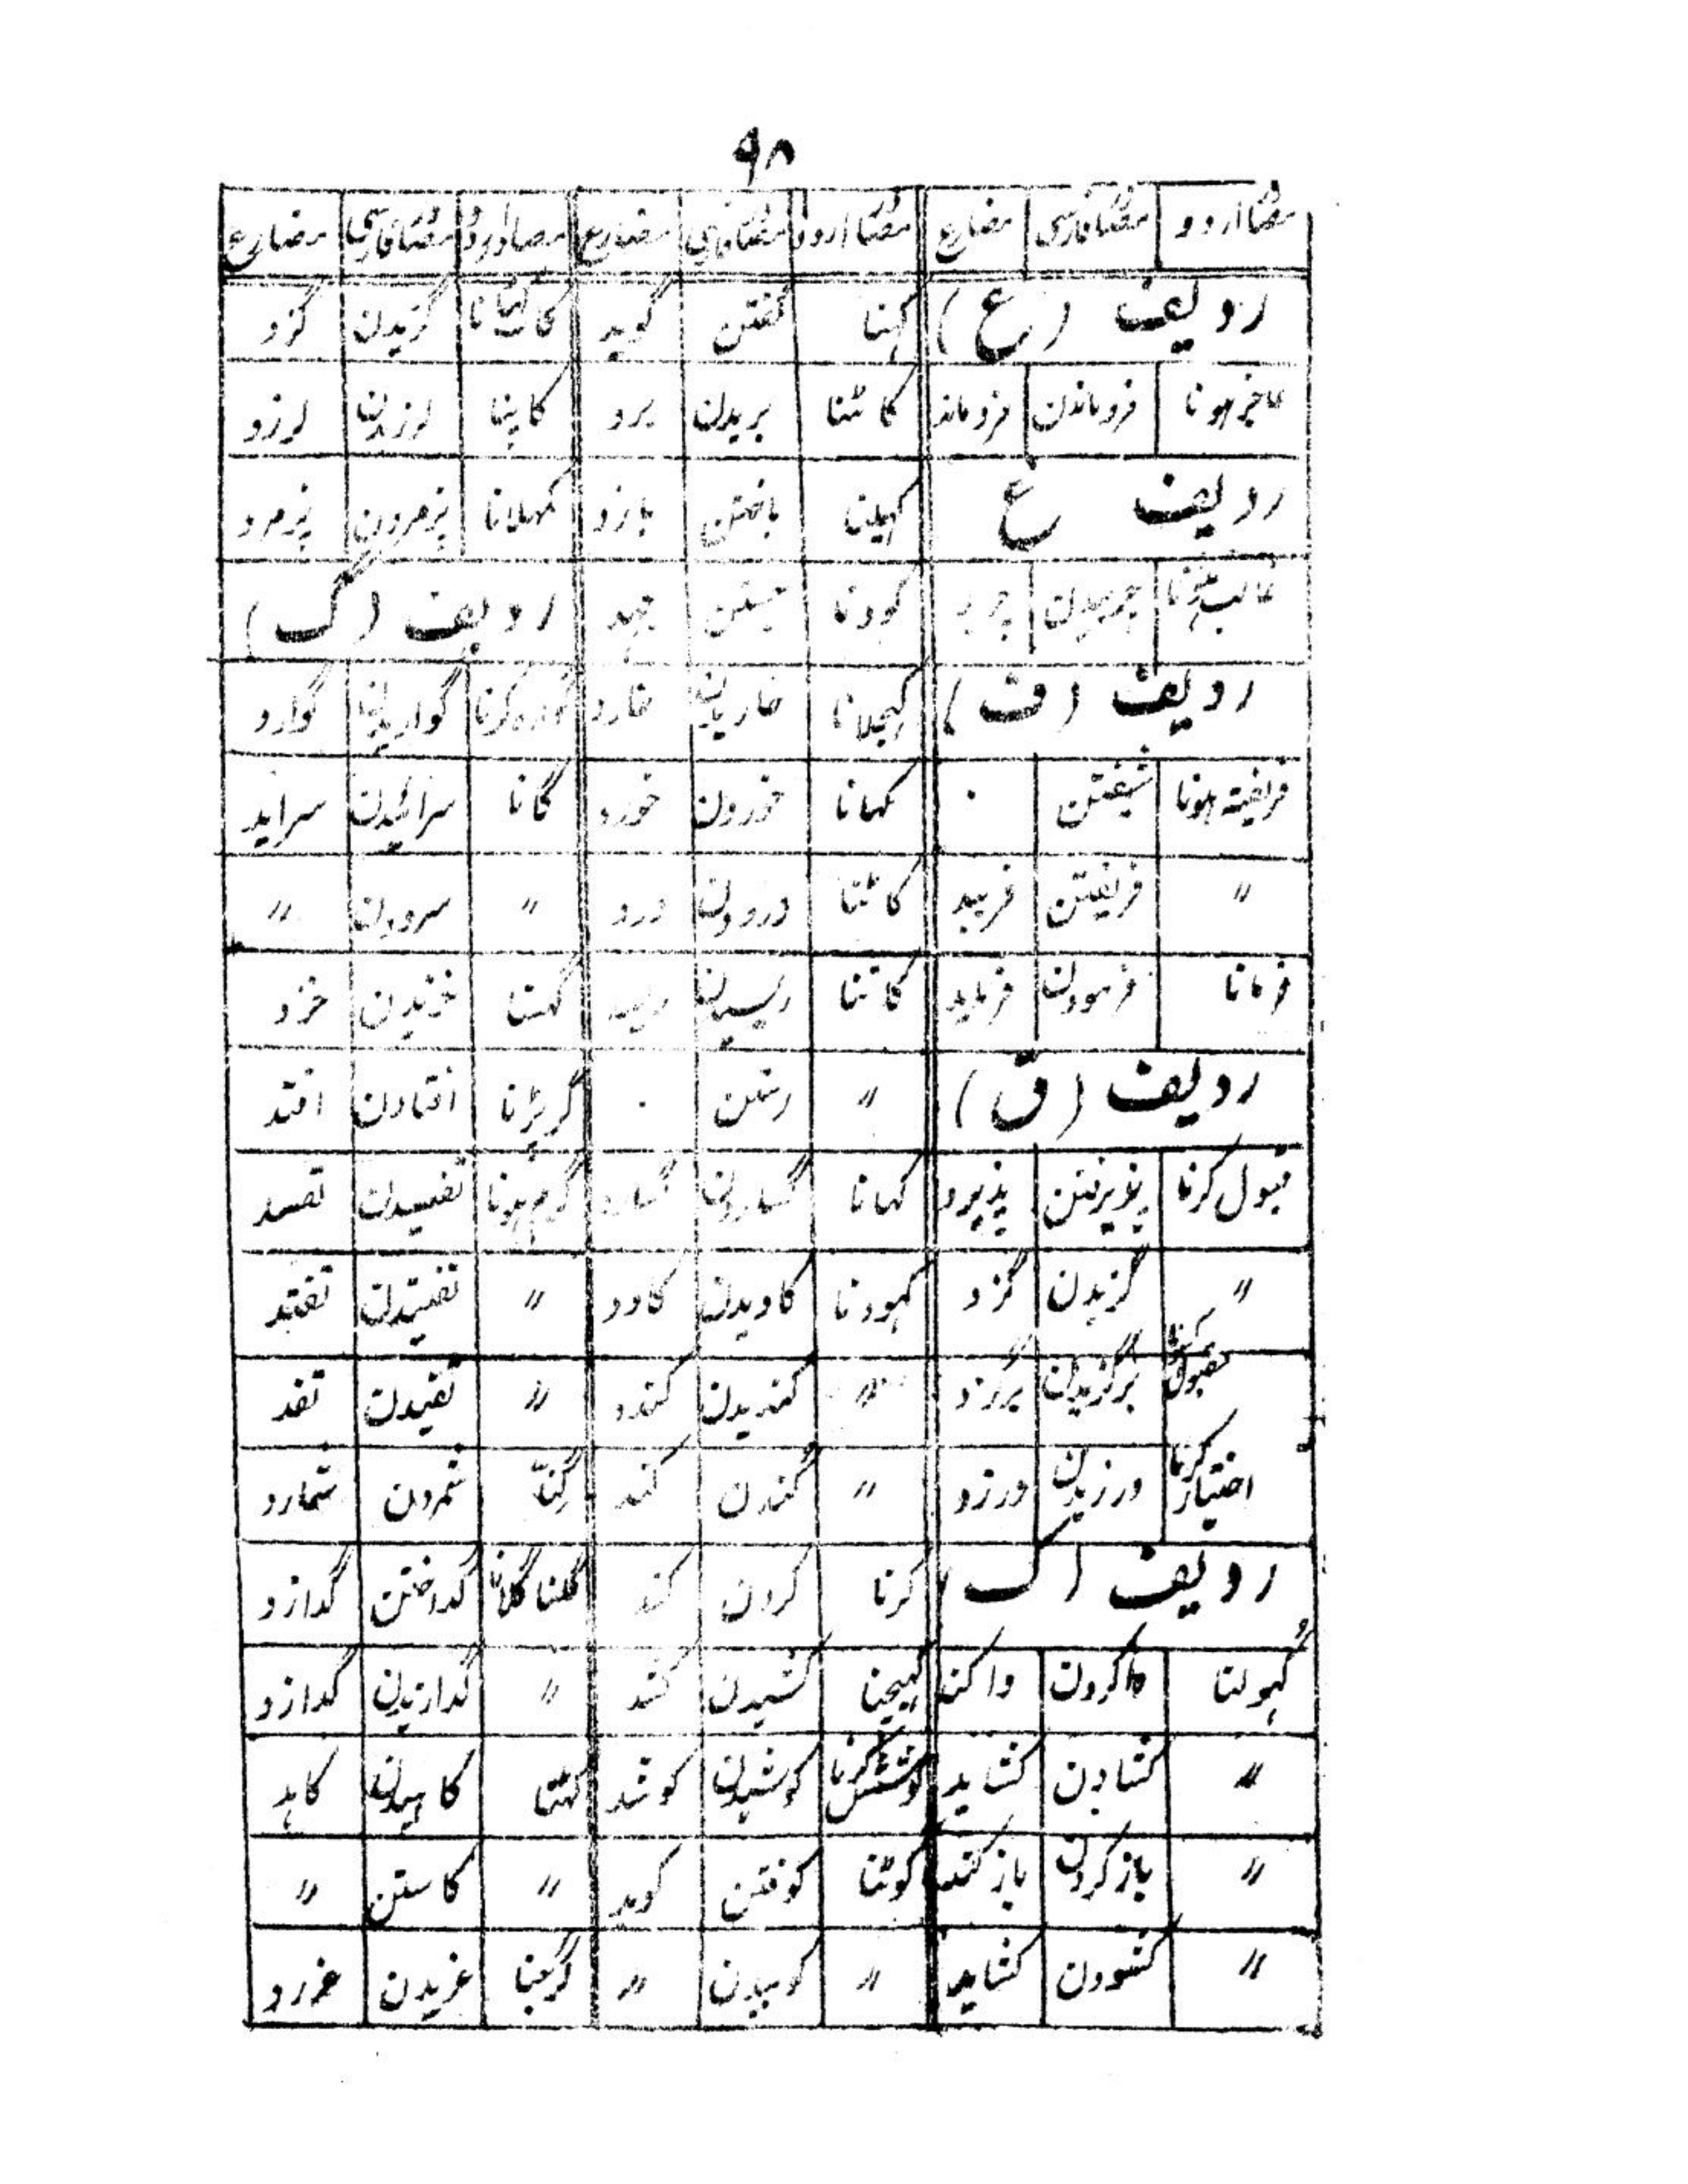 ۹۸
مصادر اردو | مصادر فارسی | مضارع | مصادر اردو | مصادر فارسی | مضارع | مصادر اردو | مصادر فارسی | مضارع
ردیف (ع) | کہنا | گفتن | گوید | کاٹنا | گزیدن | گزد
عاجز ہونا | فروماندن | فروماند | کاٹنا | بریدن | برد | کاپنا | لرزیدن | لرزد
ردیف غ | کہیلنا | باختن | بازد | کمہلانا | پژمردن | پژمرد
غالب ہونا | چربیدن | چربد | کودنا | جستن | جہد | ردیف (گ)
ردیف (ف) | کہجلانا | خاریدن | خارد | گوارہ کرنا | گواریدن | گوارد
فریفتہ ہونا | شیفتن | ۰ | کہانا | خوردن | خورد | گانا | سرائیدن | سراید
〃 | فریفتن | فریبد | کاٹنا | درودن | درد | 〃 | سرودن | 〃
فرمانا | فرمودن | فرماید | کاتنا | ریسیدن | ریسد | گہسنا | خزیدن | خزد
ردیف (ق) | 〃 | رشتن | ۰ | گر پڑنا | افتادن | افتد
قبول کرنا | پذیرفتن | پذیرد | کہانا | گساردن | گسارد | گرم ہونا | تفسیدن | تفسد
〃 | گزیدن | گزد | کہودنا | کاویدن | کاود | 〃 | تفتیدن | تفتد
مقبول کرنا | برگزیدن | برگزد | 〃 | کندیدن | کندد | 〃 | تفیدن | تفد
اختیار کرنا | ورزیدن | ورزد | 〃 | کندن | کند | گننا | شمردن | شمارد
ردیف (ک) | کرنا | کردن | کند | گلنا گلانا | گداختن | گدازد
کہولنا | واکردن | واکند | کہیچنا | کشیدن | کشد | 〃 | گدازیدن | گدازد
〃 | کشادن | کشاید | کوشش کرنا | کوشیدن | کوشد | گہٹنا | کاہیدن | کاہد
〃 | باز کردن | باز کند | کوٹنا | کوفتن | کوبد | 〃 | کاستن | 〃
〃 | کشودن | کشاید | 〃 | کوبیدن | 〃 | گرجنا | غریدن | غررد